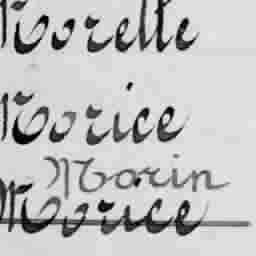 Morelle
Morice
Morin
Morice